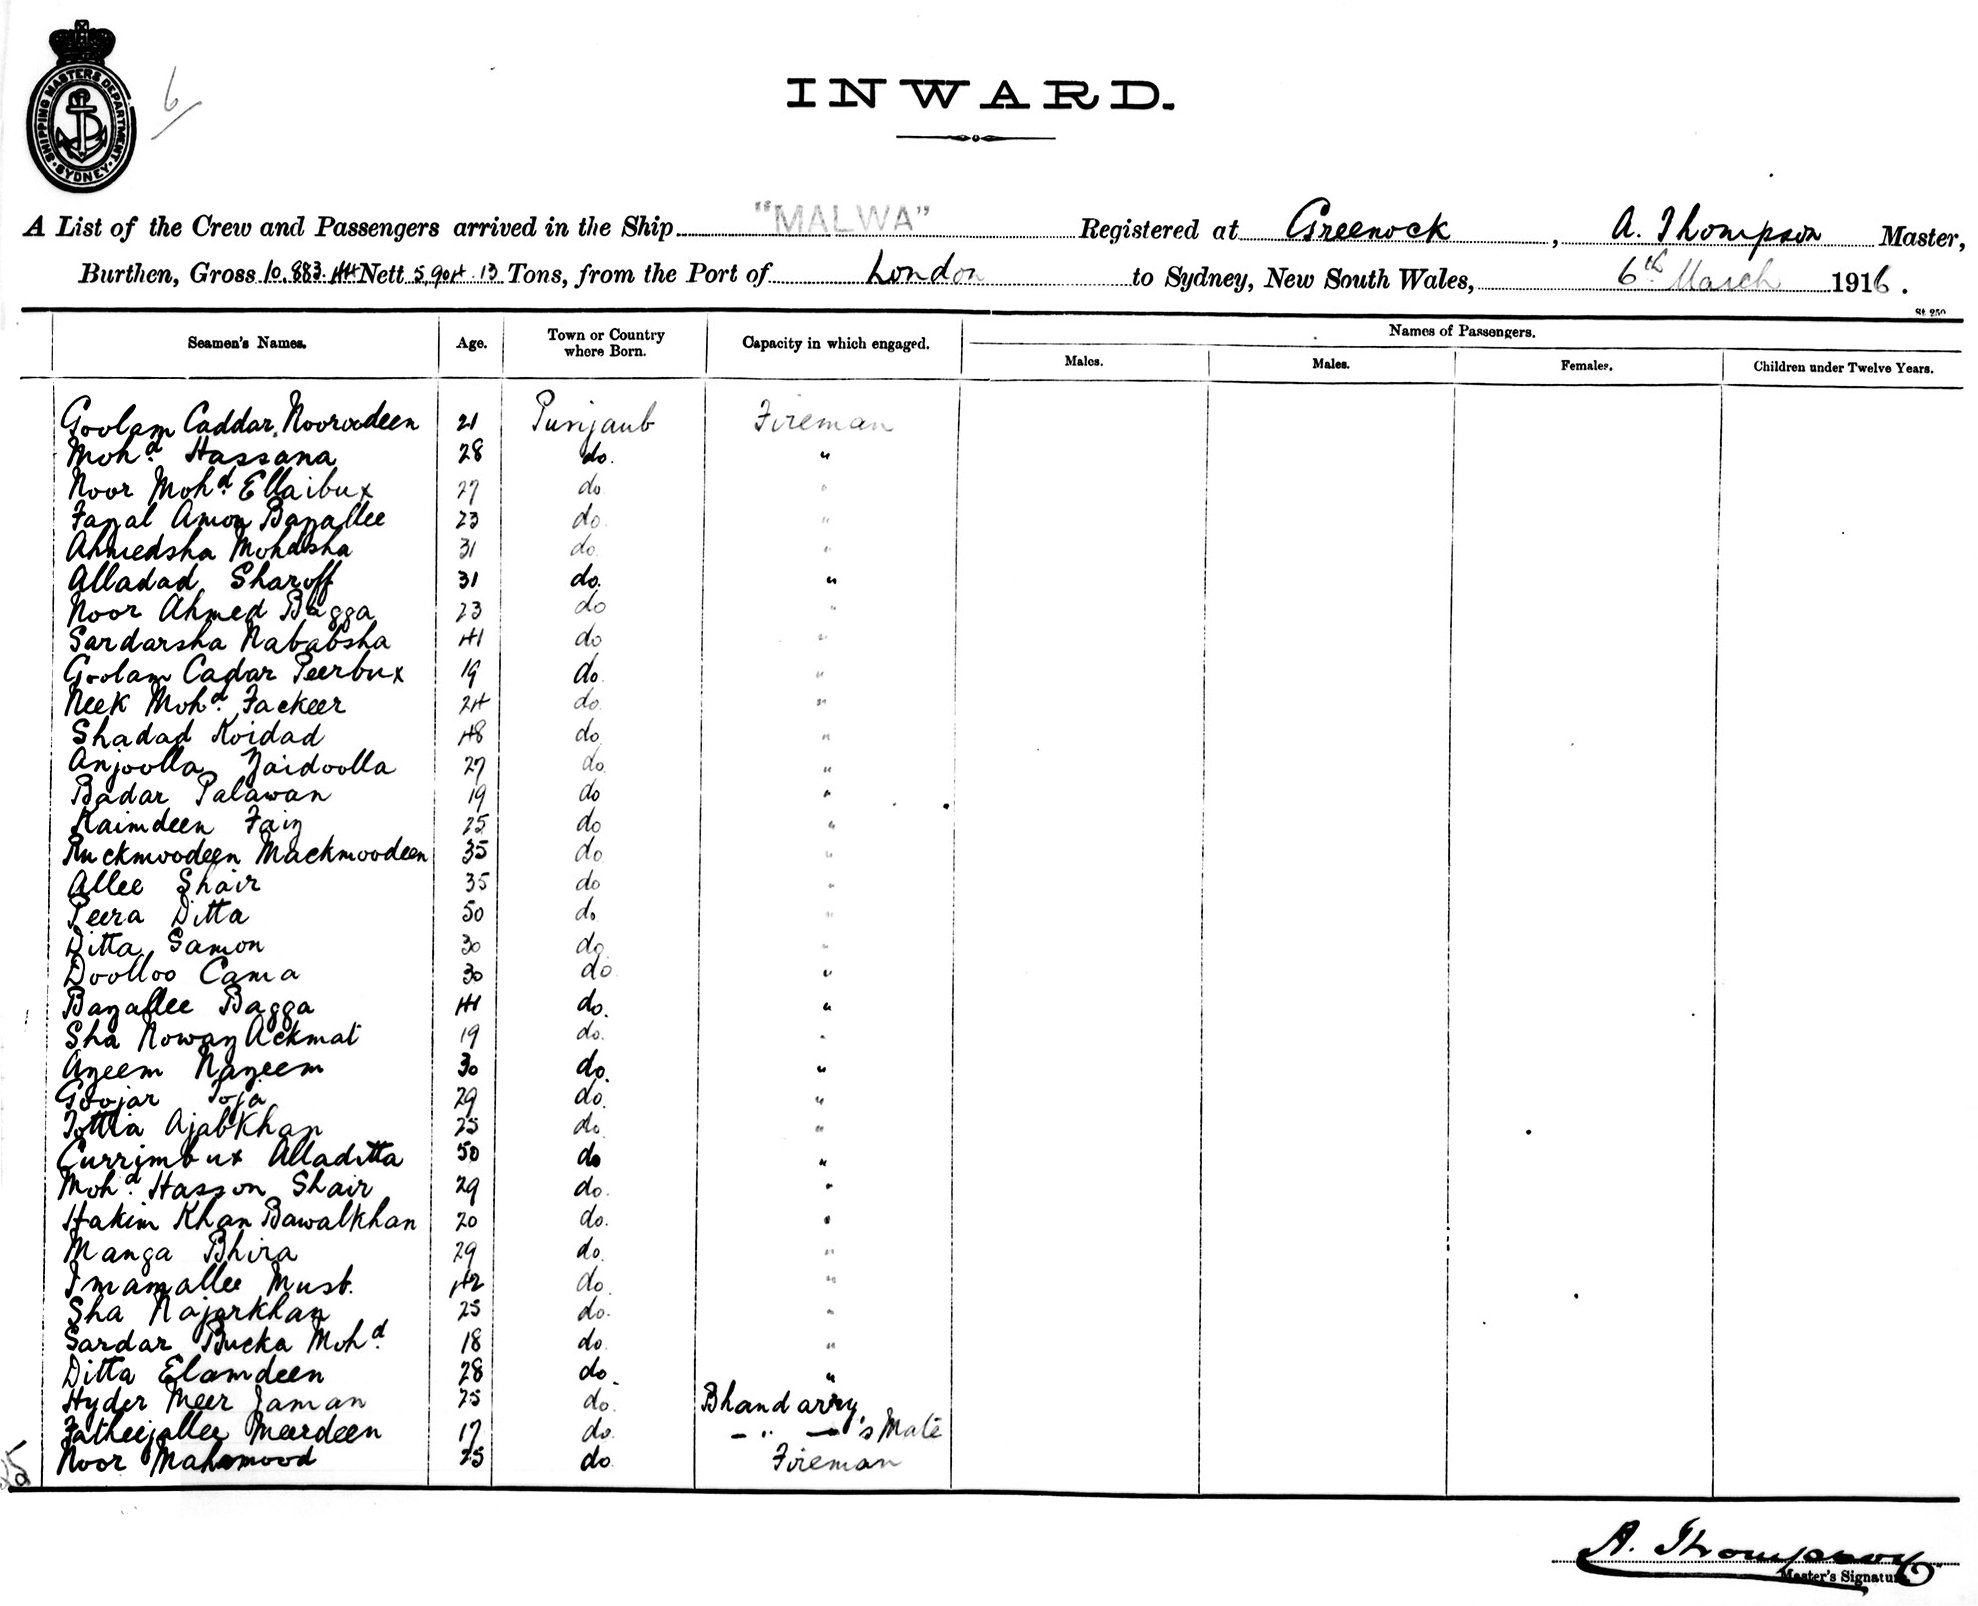 SHIPPING MASTERS DEPARTMENT · SYDNEY ·
6
INWARD.
A List of the Crew and Passengers arrived in the Ship "MALWA" Registered at Greenock, A. Thompson Master,
Burthen, Gross 10.883.44 Nett 5,904.13 Tons, from the Port of London to Sydney, New South Wales, 6th March 1916.
St 250
Seamen's Names. Age. Town or Country where Born. Capacity in which engaged. Names of Passengers.
Males. Males. Females. Children under Twelve Years.
Goolam Caddar Nooroodeen 21 Punjaub Fireman
Mohd. Hassana 28 do. "
Noor Mohd. Ellaibux 27 do "
Fazal Amon Bazallee 23 do. "
Ahmedsha Mohdsha 31 do. "
Alladad Sharoff 31 do. "
Noor Ahmed Bagga 23 do "
Sardarsha Nababsha 41 do "
Goolam Cadar Peerbux 19 do. "
Neek Mohd. Fackeer 24 do. "
Shadad Koidad 48 do "
Anjoolla Zaidoolla 27 do. "
Badar Palawan 19 do "
Kaimdeen Faiz 25 do "
Ruckmoodeen Mackmoodeen 35 do "
Allee Shair 35 do "
Peera Ditta 50 do "
Ditta Samon 30 do. "
Doolloo Cama 30 do. "
Bazallee Bagga 41 do. "
Sha Nowaz Ackmat 19 do. "
Azeem Nazeem 30 do. "
Goojar Toja 29 do. "
Tottia Ajabkhan 25 do. "
Currimbux Alladitta 50 do "
Mohd. Hasson Shair 29 do. "
Hakim Khan Bawalkhan 20 do. "
Manga Bhira 29 do. "
Imamallee Must. 42 do. "
Sha Najarkhan 25 do. "
Sardar Bucka Mohd. 18 do. "
Ditta Elamdeen 28 do. "
Hyder Meer Jaman 25 do. Bhandarry
Fatheejallee Meerdeen 17 do. - " - 's Mate
Noor Mahamood 25 do. Fireman
A. Thompson
Master's Signature